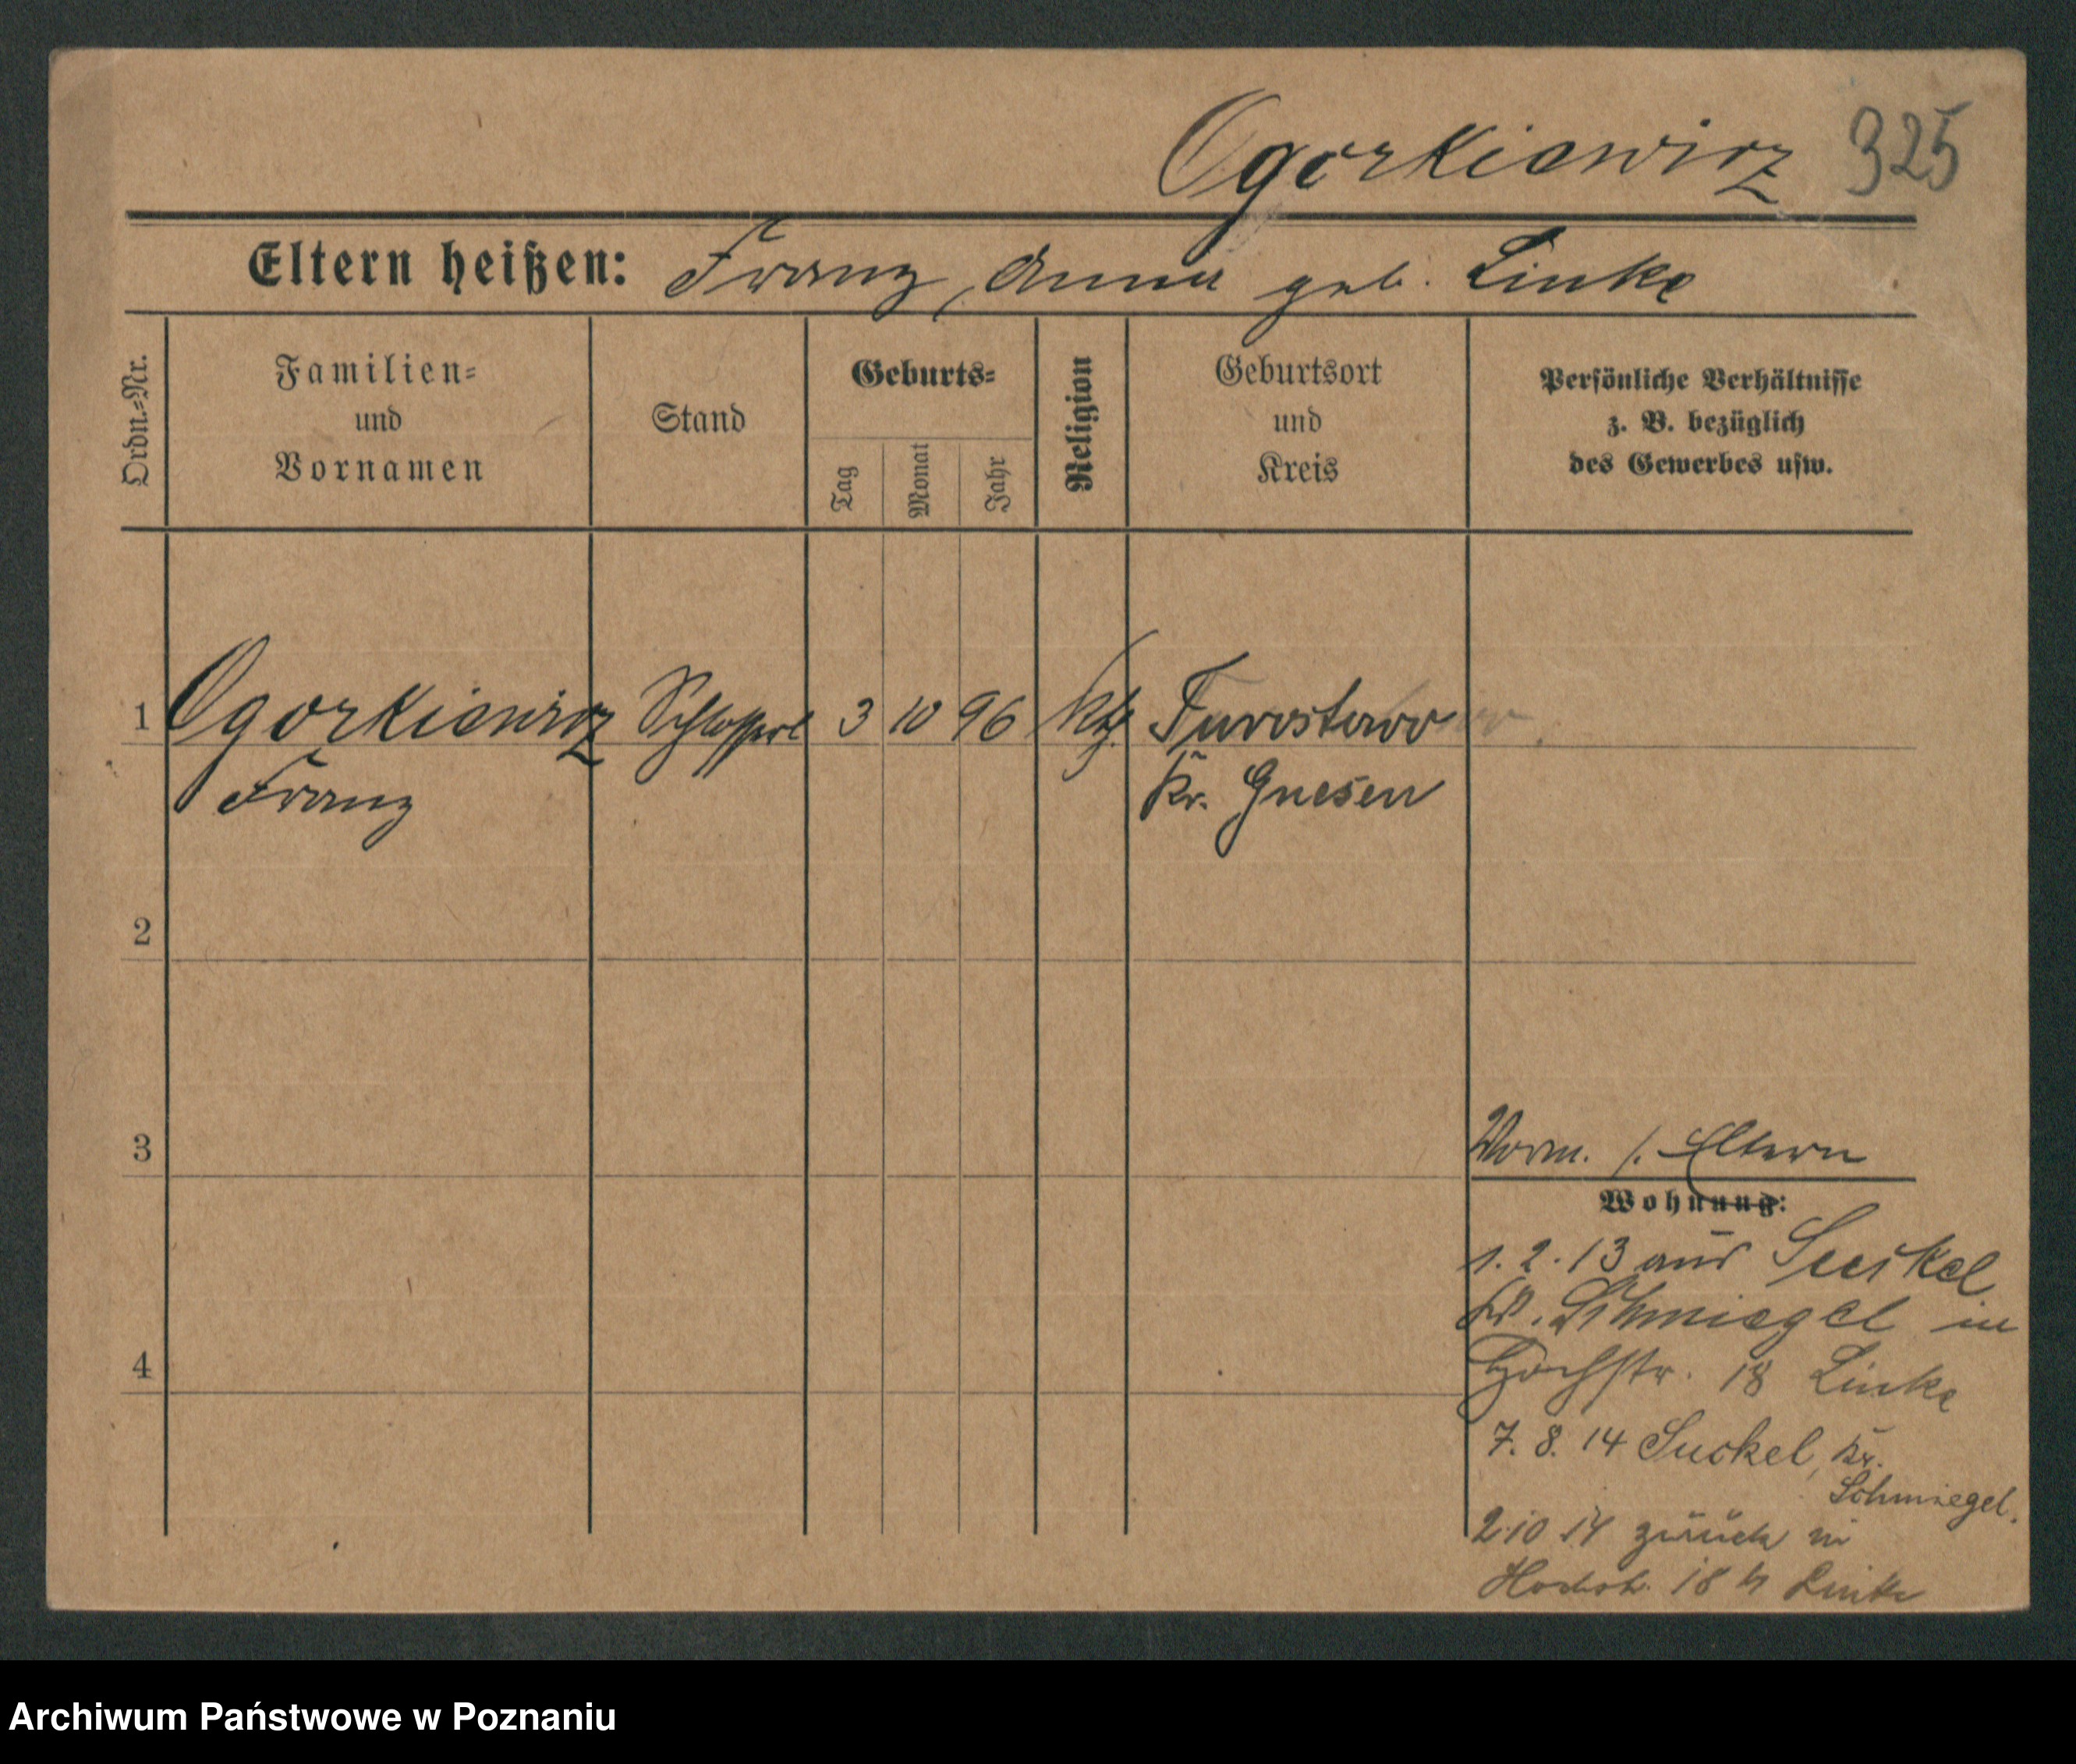 Ogorkiewicz 325
Eltern heißen: Franz, Anna geb. Linke
Ordn.-Nr.
Familien-
und
Vornamen
Stand
Geburts-
Tag
Monat
Jahr
Religion
Geburtsort
und
Kreis
Persönliche Verhältnisse
z. B. bezüglich
des Gewerbes usw.
1 Ogorkiewicz Schlosserl 3 10 96 kth. Turostowo
Franz Kr. Gnesen
2
3
4
Vorm. s. Eltern
Wohnung:
1. 2. 13 aus Suckel
Kr. Schmiegel in
Hochstr. 18 Linke
7. 8. 14 Suckel, Kr.
Schmiegel.
2.10 14 zurück in
Hochstr. 18 b Linke
Archiwum Państwowe w Poznaniu